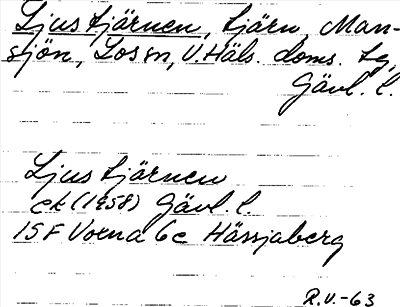 Ljustjärnen, tjärn, Man-
sjön, Los sn, V. Häls. doms. tg,
Gävl. l.
Ljustjärnen
ek (1958) Gävl. l.
15F Voxna 6c Hässjaberg
R.V.-63